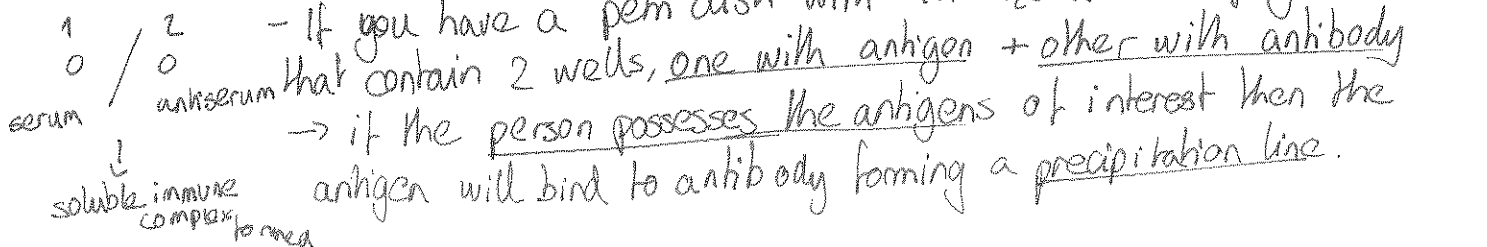 1 / 2
0 0
serum antiserum
↓
soluble immune
complex formed
- If you have a petri dish with
that contain 2 wells, one with antigen + other with antibody
→ if the person possesses the antigens of interest then the
antigen will bind to antibody forming a precipitation line.